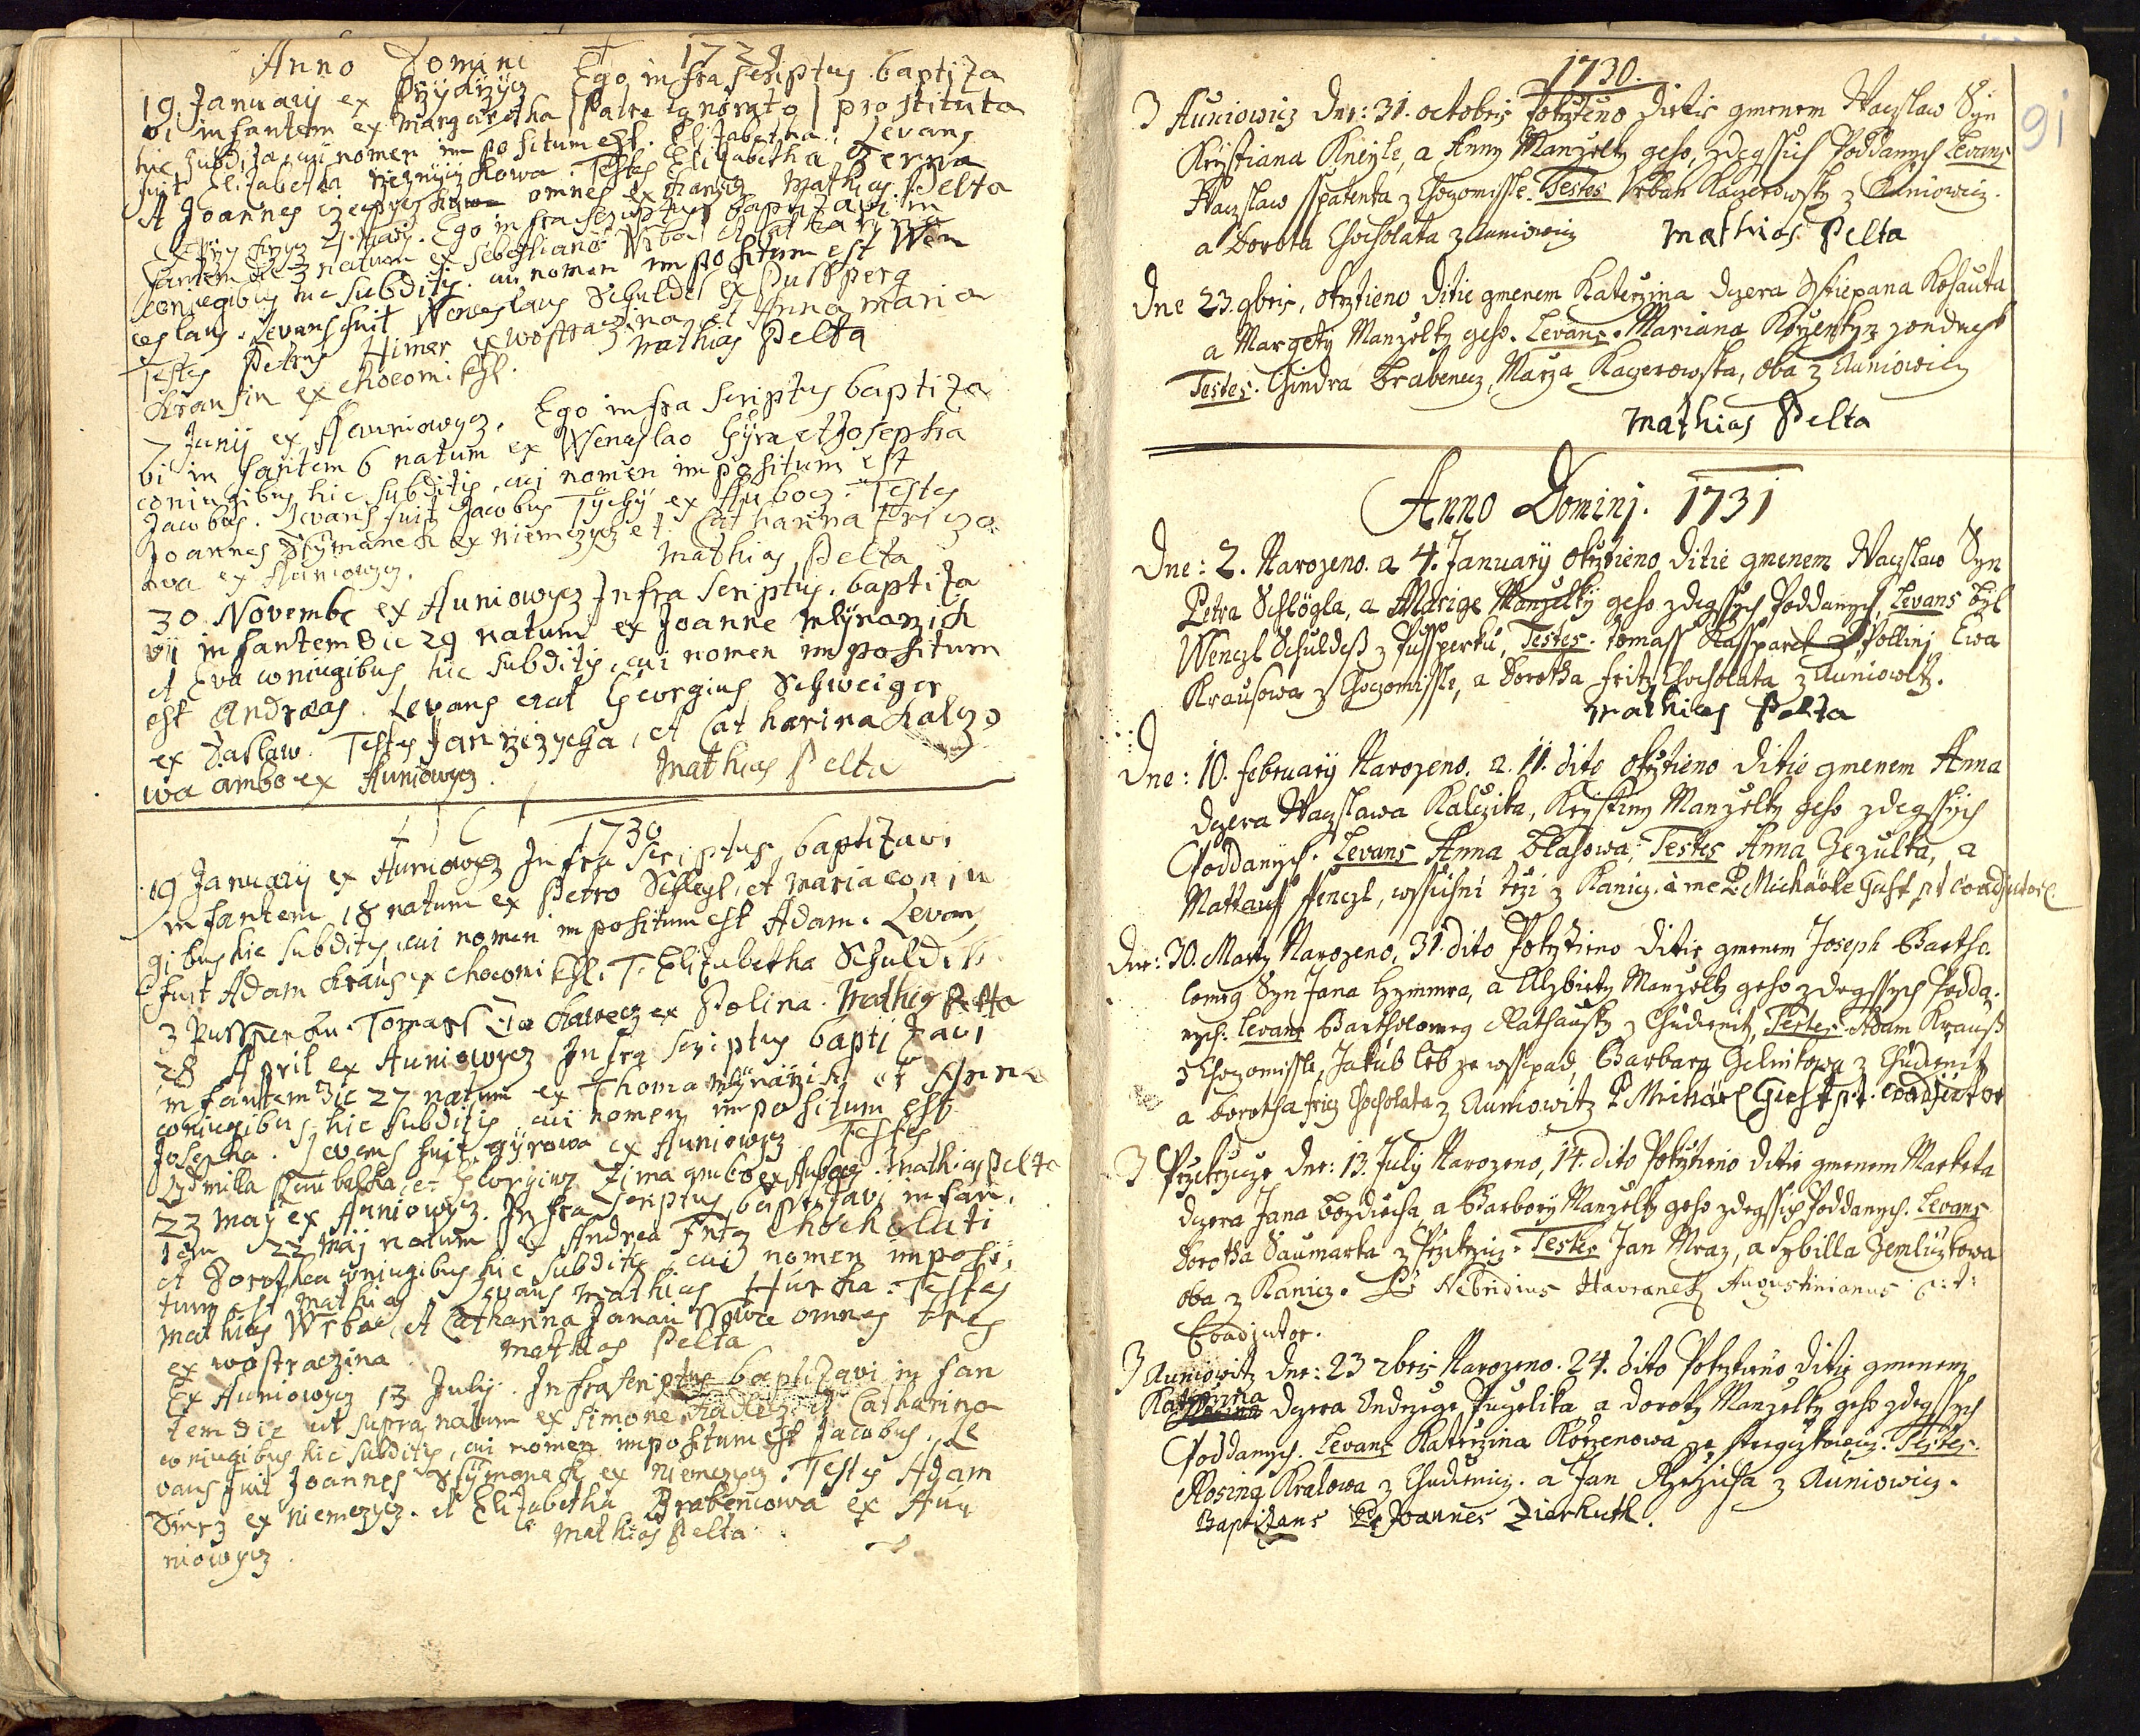 Anno Domini 1729
19 Januarij ex Ego infra scriptus baptiza
vi infantem ex Margaretha (Patre ignorato) prostituta
hic subdita, cui nomen impositum est Elizabetha. Levans
fuit Elizabetha Testes Elizabetha
et Joannes omnes ex Kanicz Mathias Pelta
Ego infra scriptus baptizavi in
fantem die 3 natum ex Sebestiano Wrba et Catharina
conjugibus hic subditis. cui nomen impositum est Wen
ceslaus. Levans fuit Wenceslaus Schuldes ex Pussperg
Testes Petrus Himer ex Wostraczina, et Anna Maria
Krausin ex Chocomissl. Mathias Pelta
7 Junij ex Auniowycz. Ego infra scriptus baptiza
vi infantem 6 natum ex Wenceslao Gyra et Josepha
coniugibus hic subditis, cui nomen impositum est
Jacobus. Levans fuit Jacobus Tychy ex Aubocz. Testes
Joannes Ssymanek ex Niemczycz et Catharina
owa ex Auniowycz. Mathias Pelta
30 Novembr ex Auniowycz Infra scriptus. baptiza
vi infantem die 29 natum ex Joanne Mlynarzich
et Eva coniugibus hic subditis, cui nomen impositum
est Andreas. Levans erat Georgius Schweiger
ex Zaslaw. Testes Jan et Catharina Kalczo
wa ambo ex Auniowycz. Mathias Pelta
1730
19 Januarij ex Auniowycz Infra scriptus baptizavi
infantem 18 natum ex Petro Schlegl, et Maria conju
gibus hic subditis, cui nomen impositum est Adam. Levans
fuit Adam Kraus ex Chocomissl. T. Elizabetha Schuldes
z Pussperku. Tomass ex Polina. Mathias Pelta
28 April ex Auniowycz Infra scriptus baptizavi
infantem die 27 natum ex Thoma Mlynarzich et Anna
coniugibus hic subditis cui nomen impositum est
Josepha. Levans fuit Gyrowa ex Auniowycz Testes
Lydmilla et Georgius Zima ambo ex Aubocz. Mathias Pelta
23 Maij ex Auniowycz. Infra scriptus baptizavi infan
tem 22 Maij natum ex Andrea Fritz Chocholati
et Dorothea coniugibus hic subditis, cui nomen imposi
tum est Mathias. Levans Mathias Hurka. Testes
Mathias Wrba, et Catharina omnes tres
ex Wostraczina. Mathias Pelta
Ex Auniowycz 13 July. Infra scriptus baptizavi in fan
tem die ut supra natum ex Simone et Catharina
coniugibus hic subditis, cui nomen impositum est Jacobus. Le
vans fuit Joannes Ssymonek ex Niemczycz. Testes Adam
ex Niemczycz. et Elizabetha Brabencowa ex Au
niowycz. Mathias Pelta
91
1730.
Z Auniowicz Dne: 31. octobris Pokrzteno Ditie gmenem Waczlaw Syn
Krystiana Kneyle, a Anny Manzelky geho, zdegssich Poddanych Levans
Waczlaw Sspatenka z Choczomissle. Testes Vrban Kagerowsky z Auniowicz.
a Dorota Chocholata z Auniowicz Mathias Pelta
Dne 23. 9bris, okrztieno Ditie gmenem Katerzina Dczera Sstiepana Kohauta
a Margety Manzelky geho. Levans. Mariana
Testes. Gindra Brabenecz, Marya Kagerowska, oba z Auniowicz
Mathias Pelta
Anno Dominj. 1731
Dne: 2. Narozeno. a 4. January okrztieno Ditie gmenem Waczlaw Syn
Petra Schlögla, a Marige Manzelky geho zdegssych Poddanych, Levans byl
Wenczl Schuldess z Pussperku, Testes. Tomass Kassparek z Pollinj Ewa
Krausowa z Choczomissle, a Dorotha fritz Chocholata z Auniowitz.
Mathias Pelta
Dne: 10. February Narozeno. a. 11. dito okrztieno Ditie gmenem Anna
Dczera Waczlawa Kalczika, Krystiny Manzelky geho zdegssych
Poddanych. Levans Anna Blahowa, Testes Anna Jezulka, a
Mattaus ffenczl, wssichni trzi z Kanicz. à me P. Michäele Guft p.t. coadjutore
Dne: 30. Marty Narozeno, 31. dito Pokrztieno Ditie gmenem Joseph Bartho.
lomeg Syn Jana Hymmra, a Alzbiety Manzelky geho zdegssych Podda.
nych. Levans Bartholomeg Rathausky z Chudenitz, Testes. Adam Krauss
z Choczomissle, Jakub Leb ze wssepad, Barbara z Chudenitz
a Dorotha fricz Chocholata z Auniowitz P. Michäel Gieft p.t. coadjutor
Z Dne: 13. July Narozeno, 14. dito Pokrztieno Ditie gmenem Marketa
Dczera Jana Bozdiecha a Barbory Manzelky geho zdegssich Poddanych. Levans
Dorotha Saumarka z Testes Jan Mraz, a Sybilla
oba z Kanicz. P. Nebridius Havranek Augustinianus p: t:
Coadjutor.
Z Auniowitz Dne: 23 7bris Narozeno. 24. dito Pokrztieno Ditie gmenem
Katerzina Dczera Ondrzege a Doroty Manzelky geho zdegssych
Poddanych. Levans Katerzina Korzenowa Testes.
Rosina Kralowa z Chudenicz. a Jan z Auniowicz.
Baptizans P. Joannes Zierhuth.